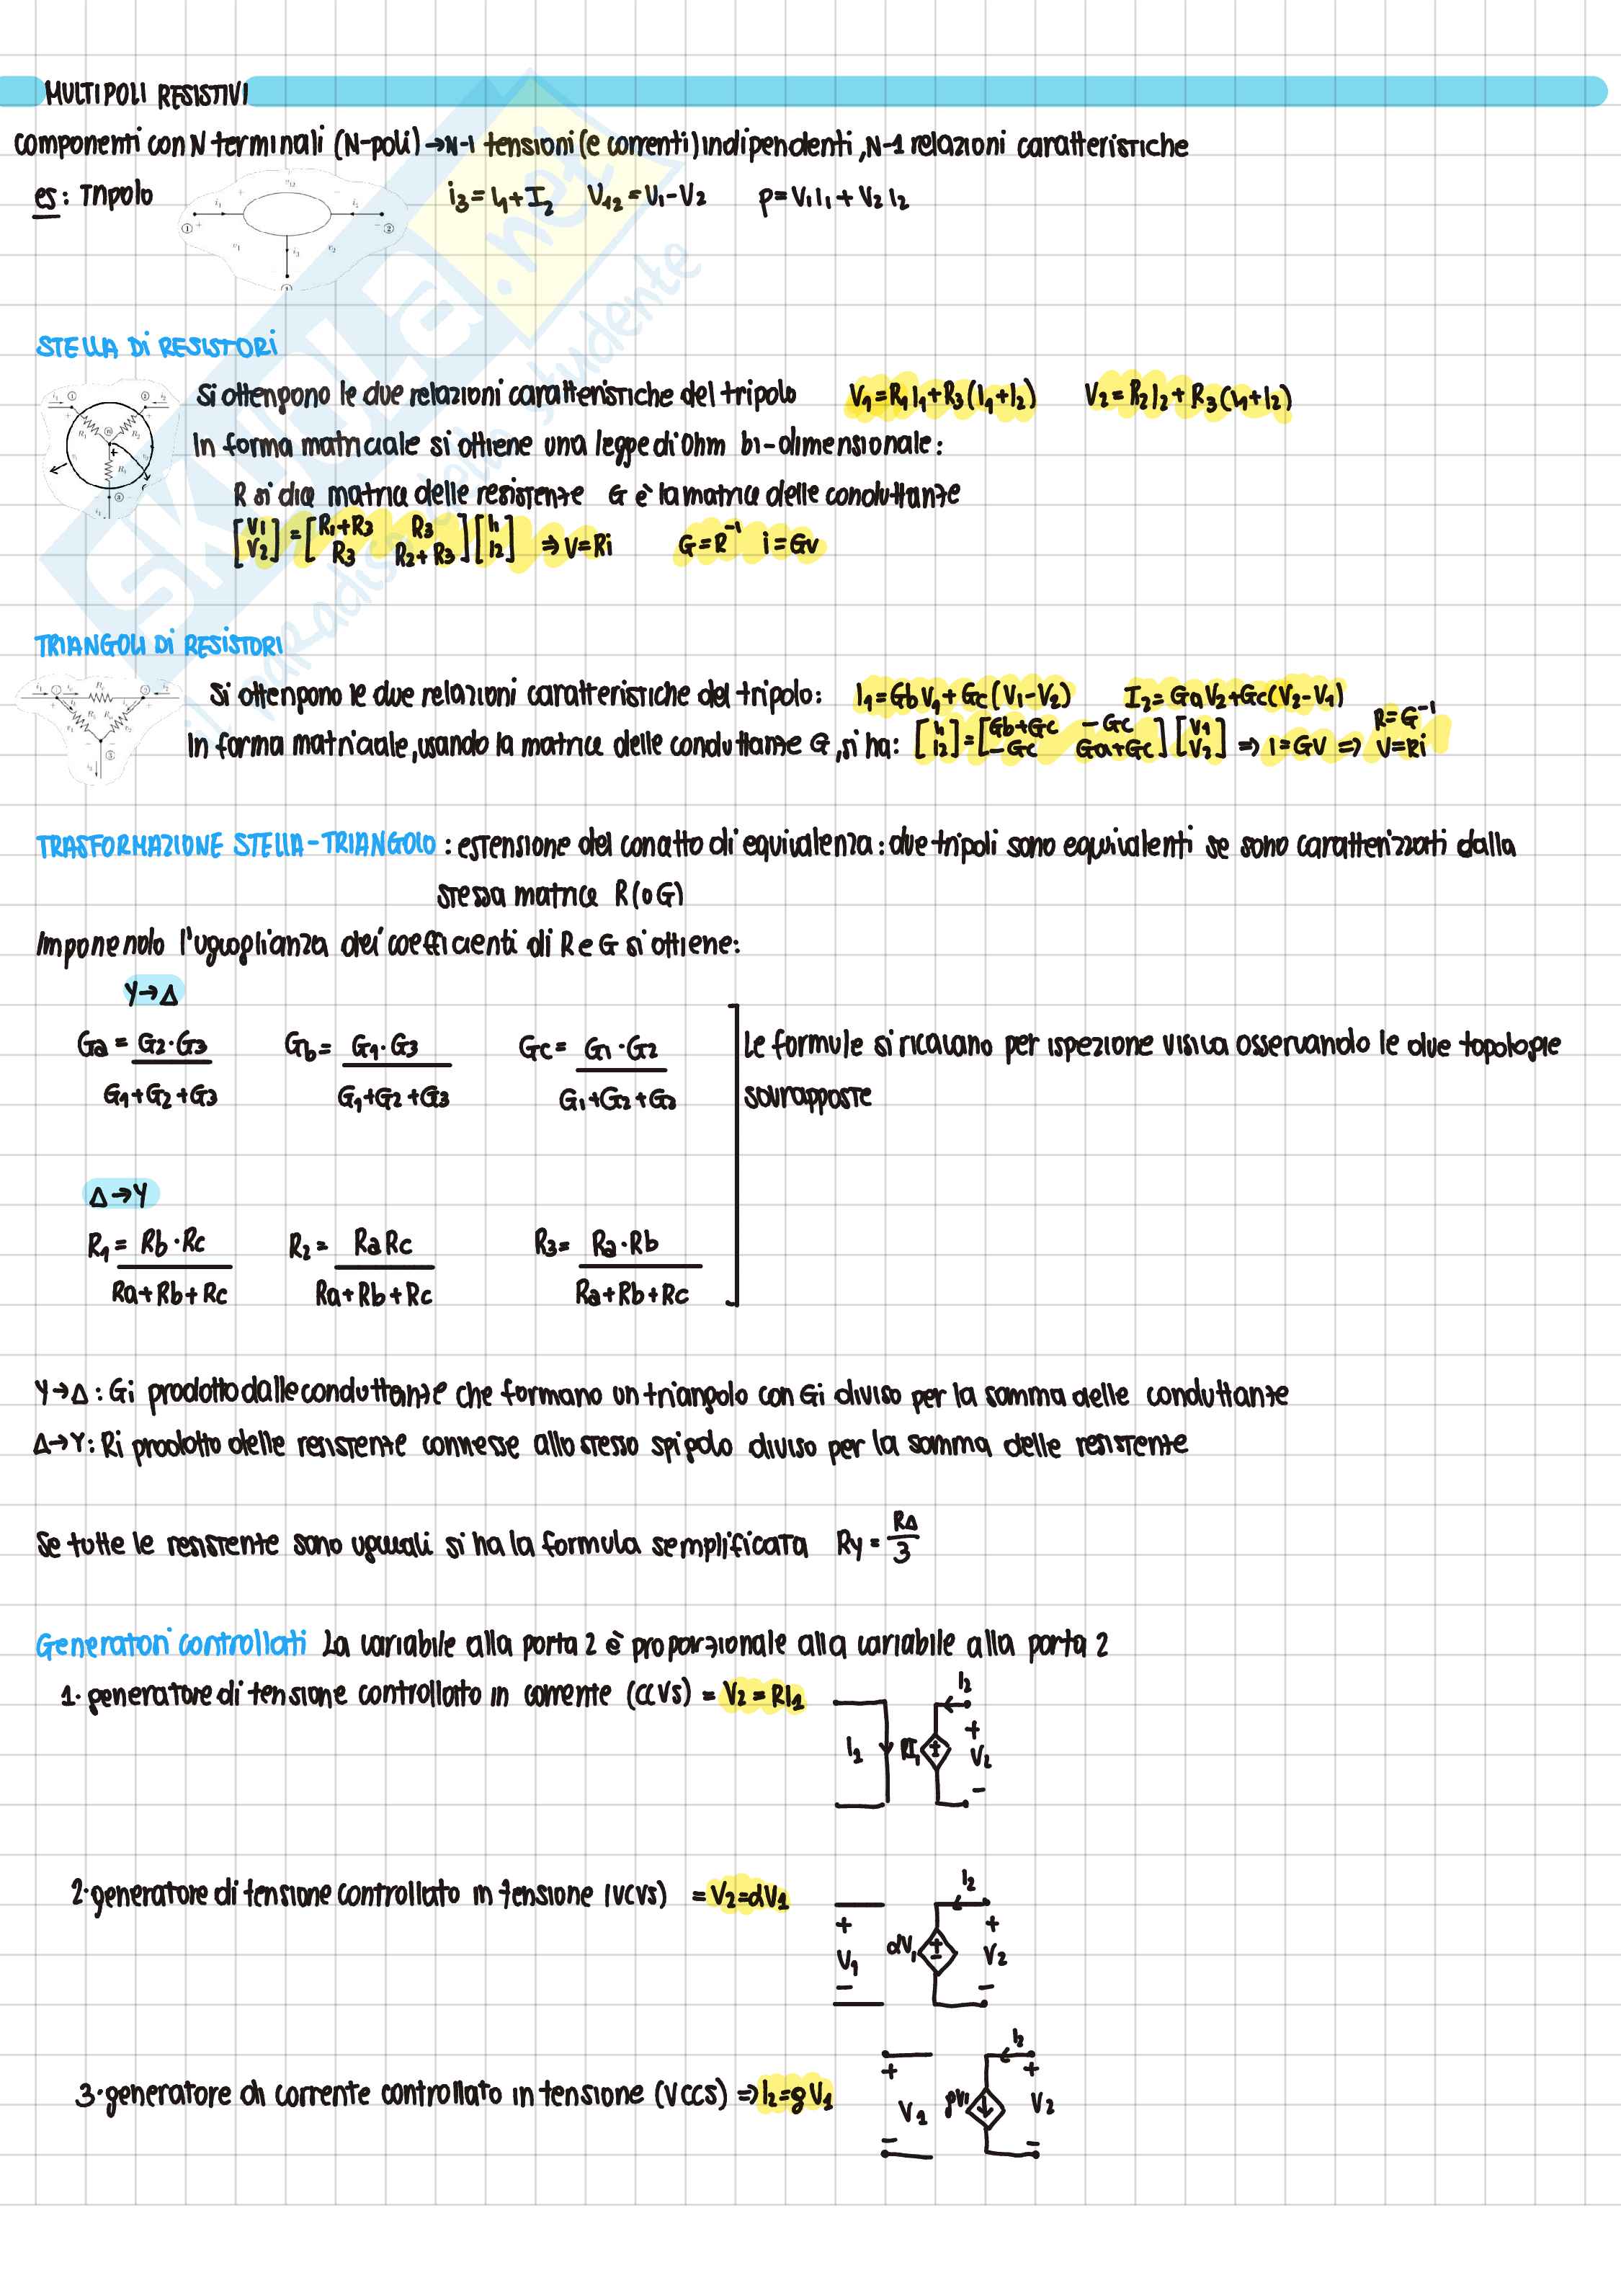 MULTIPOLI RESISTIVI
componenti con N terminali (N-poli) → N-1 tensioni (e correnti) indipendenti, N-1 relazioni caratteristiche
es: Tripolo i3 = I1 + I2 V12 = V1 - V2 P = V1 I1 + V2 I2
STELLA Di RESISTORI
Si ottengono le due relazioni caratteristiche del tripolo V1 = R1 I1 + R3 (I1 + I2) V2 = R2 I2 + R3 (I1 + I2)
In forma matriciale si ottiene una legge di Ohm bi-dimensionale:
R si dice matrice delle resistenze G è la matrice delle conduttanze
[V1 V2] = [R1+R3 R3 R3 R2+R3] [I1 I2] ⇒ V = Ri G = R⁻¹ i = Gv
TRIANGOLI Di RESISTORI
Si ottengono le due relazioni caratteristiche del tripolo: I1 = Gb V1 + Gc (V1 - V2) I2 = Ga V2 + Gc (V2 - V1)
In forma matriciale, usando la matrice delle conduttanze G, si ha: [I1 I2] = [Gb+Gc -Gc -Gc Ga+Gc] [V1 V2] ⇒ I = GV ⇒ R = G⁻¹ V = Ri
TRASFORMAZIONE STELLA-TRIANGOLO : estensione del concetto di equivalenza: due tripoli sono equivalenti se sono caratterizzati dalla
stessa matrice R (o G)
Imponendo l'uguaglianza dei coefficienti di R e G si ottiene:
Y → Δ
Ga = G2 · G3 / G1 + G2 + G3 Gb = G1 · G3 / G1 + G2 + G3 Gc = G1 · G2 / G1 + G2 + G3
Le formule si ricavano per ispezione visiva osservando le due topologie
sovrapposte
Δ → Y
R1 = Rb · Rc / Ra + Rb + Rc R2 = Ra Rc / Ra + Rb + Rc R3 = Ra · Rb / Ra + Rb + Rc
Y → Δ : Gi prodotto dalle conduttanze che formano un triangolo con Gi diviso per la somma delle conduttanze
Δ → Y : Ri prodotto delle resistenze connesse allo stesso spigolo diviso per la somma delle resistenze
Se tutte le resistenze sono uguali si ha la formula semplificata Ry = RΔ / 3
Generatori controllati La variabile alla porta 2 è proporzionale alla variabile alla porta 2
1. generatore di tensione controllato in corrente (CCVS) = V2 = RI1
I2
I2 RI1 + V2 -
2. generatore di tensione controllato in tensione (VCVS) = V2 = dV1
I2
+ V1 - dV1 + V2 -
3. generatore di corrente controllato in tensione (VCCS) ⇒ I2 = gV1
I2
+ V1 - gV1 + V2 -
SKUOLA.net
il paradiso dello studente